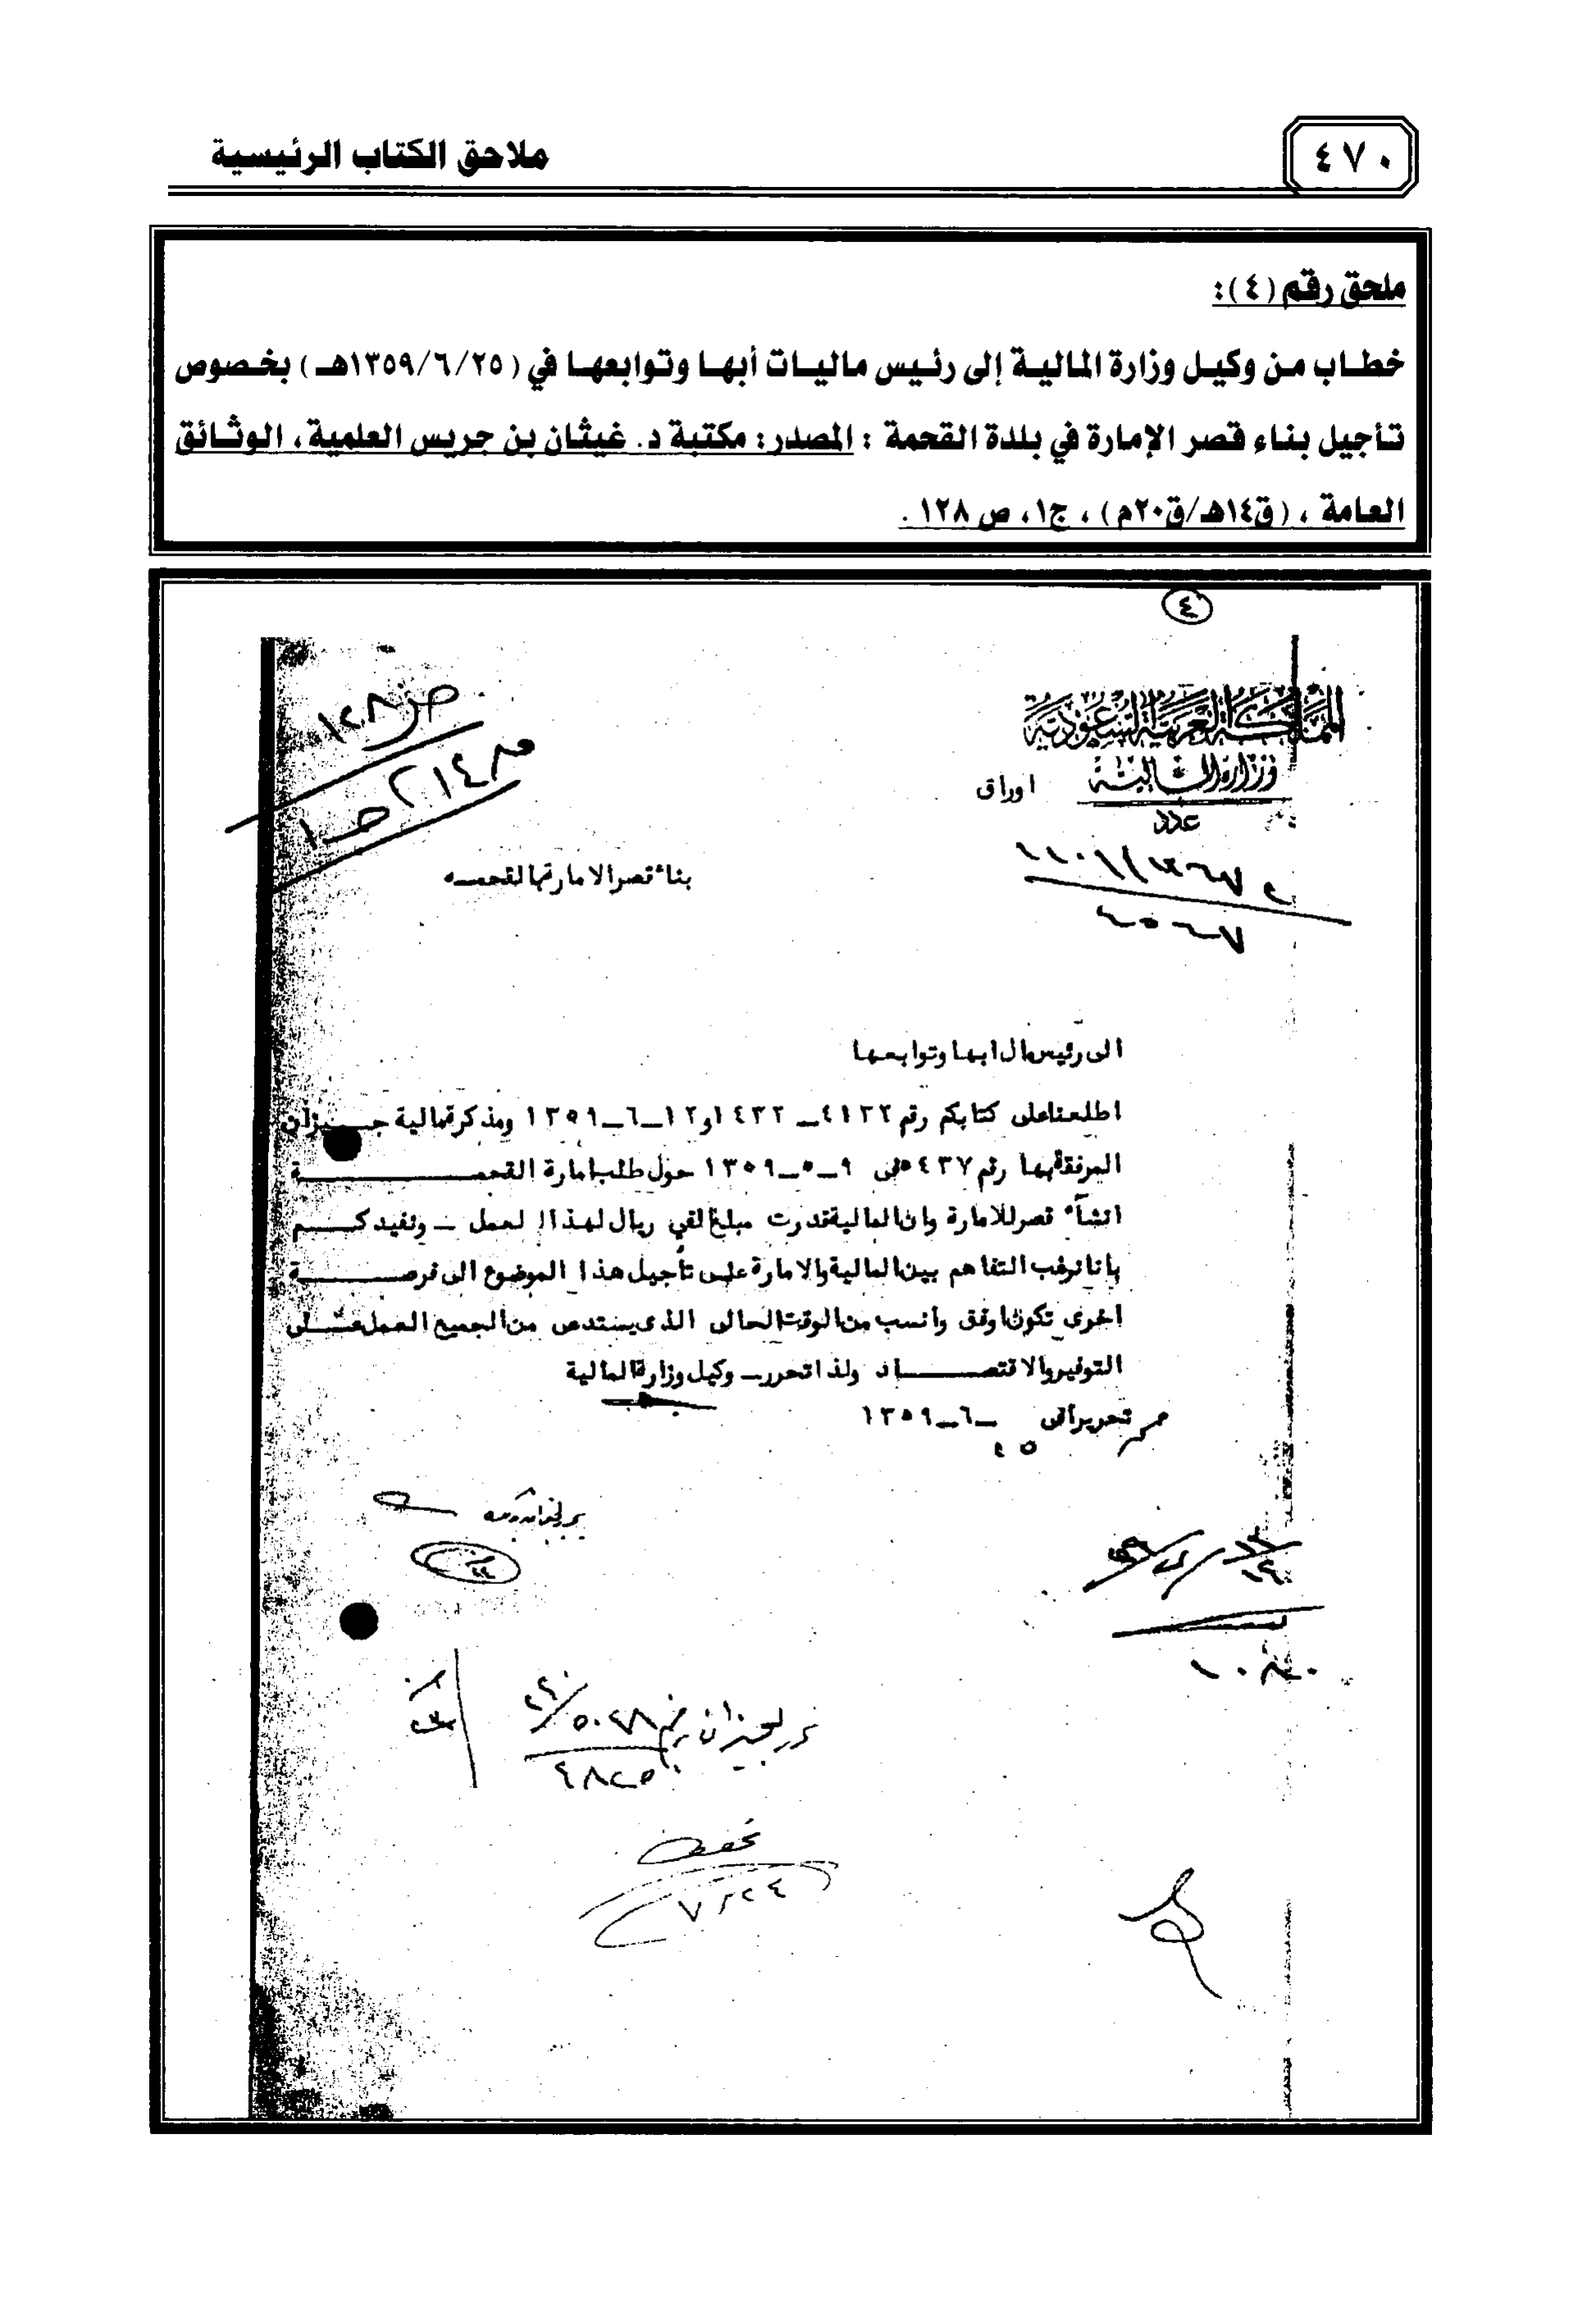 ٤٧٠
ملاحق الكتاب الرئيسية
ملحق رقم (٤):
خطاب من وكيل وزارة المالية إلى رئيس ماليات أبها وتوابعها في (٢٥/٦/١٣٥٩هـ) بخصوص
تأجيل بناء قصر الإمارة في بلدة القحمة : المصدر: مكتبة د. غيثان بن جريس العلمية، الوثائق
العامة ، (ق١٤هـ/ق٢٠م) ، ج١، ص ١٢٨ .
٤
ص ١٢٨
المملكة العربية السعودية
وزارة المالية
اوراق
عدد
بناء قصر الامارة بالقحمه
الى رئيس مال ابها وتوابعها
اطلعنا على كتابكم رقم ٤١٣٢ـ ١٤٣٢ و١٢ـ٦ـ١٣٥٩ ومذكرة مالية جـيزان
المرفقة بها رقم ٥٤٣٧ في ٩ـ٥ـ١٣٥٩ حول طلب امارة القحمـة
انشاء قصر للامارة وان المالية قدرت مبلغ الفي ريال لهذا العمل ـ ونفيدكـم
بانا نرغب التفاهم بين المالية والامارة على تأجيل هذا الموضوع الى فرصـة
اخرى تكون اوفق وانسب من الوقت الحالى الذى يستدعى من الجميع العمل عـلى
التوفير والاقتصـاد ولذا تحرر ـ وكيل وزارة المالية
تحريرا فى ٢٥ـ٦ـ١٣٥٩